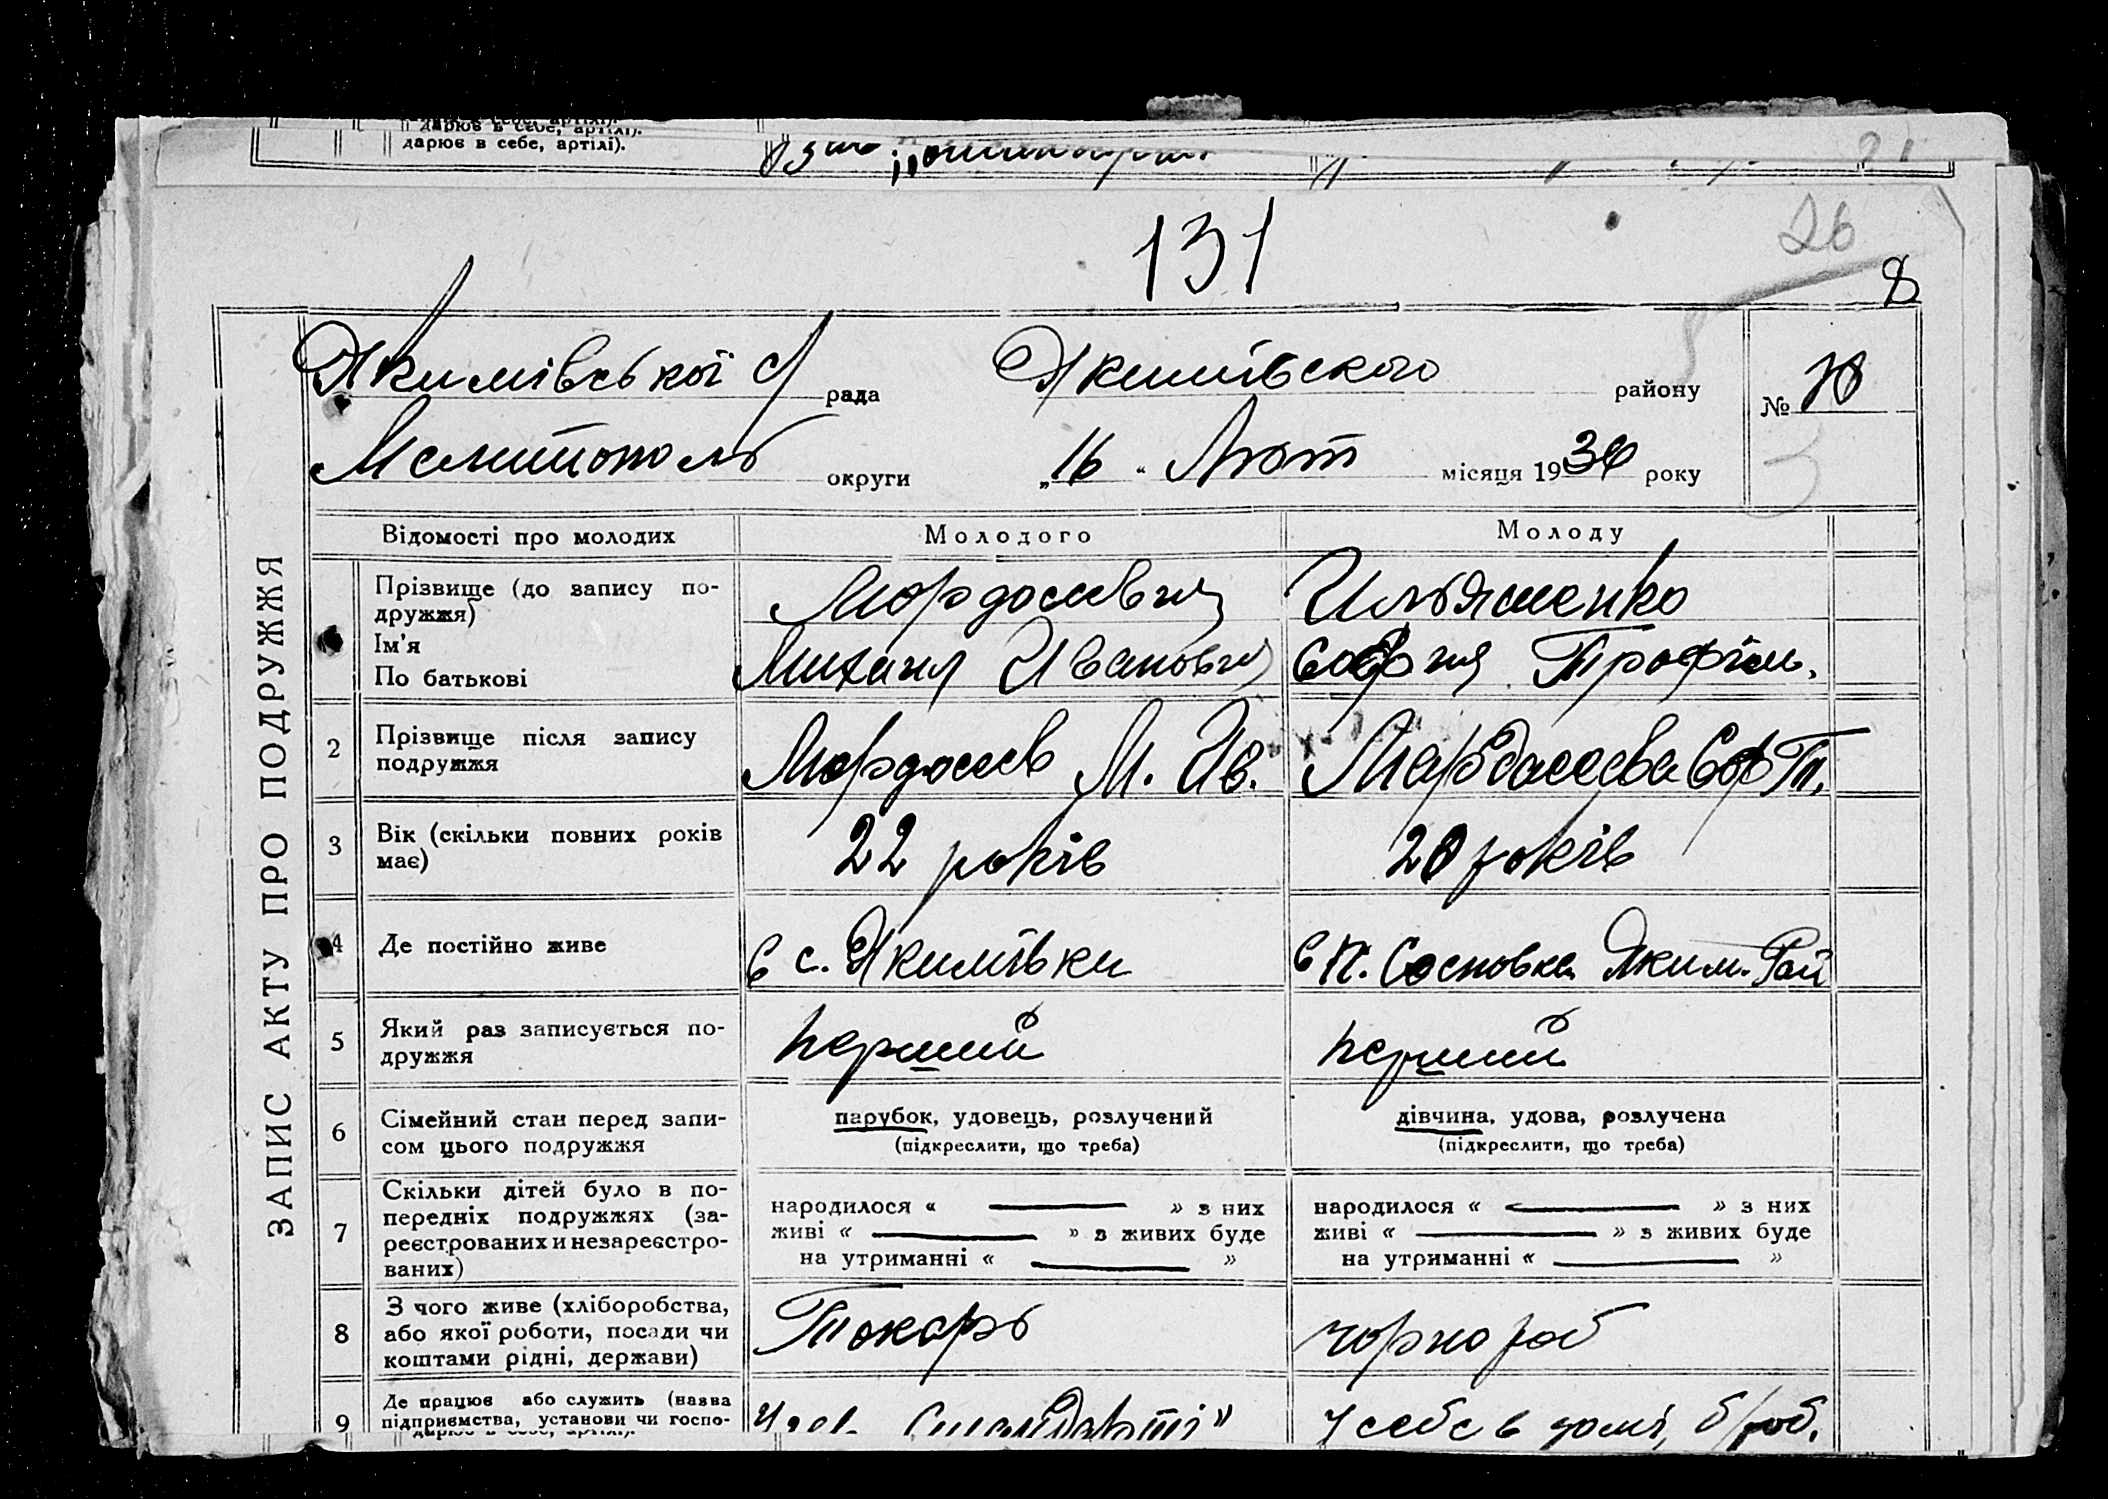 дарює в себе, артілі).
дарює в себе, артілі).
131
26
8
Якимівської с/рада Якимівского району
№
Мелитополь округи „16“ Лют місяця 1930 року
ЗАПИС АКТУ ПРО ПОДРУЖЖЯ
Відомості про молодих Молодого Молоду
Прізвище (до запису по-
дружжя) Ильяшенко
Ім'я
По батькові Михаил Иванович София Трофім.
2 Прізвище після запису
подружжя Мордашев М. Ив. Мардашева Соф Тр.
3 Вік (скільки повних років
має) 22 років 20 років
4 Де постійно живе в с. Якимівки в п. Сосновка Яким. Рай
5 Який раз записується по-
дружжя перший перший
6 Сімейний стан перед запи-
сом цього подружжя
парубок, удовець, розлучений дівчина, удова, розлучена
(підкреслити, що треба) (підкреслити, що треба)
7 Скільки дітей було в по-
передніх подружжях (за-
реєстрованих и незареєстро-
ваних)
народилося « — » з них народилося « — » з них
живі « — » з живих буде живі « — » з живих буде
на утриманні « — » на утриманні « — »
8 З чого живе (хліборобства,
або якої роботи, посади чи
коштами рідні, держави) Токарь чорнороб
9 Де працює або служить (назва
підприємства, установи чи госпо-
дарює в себе, артілі). У себе в домі, б/роб.